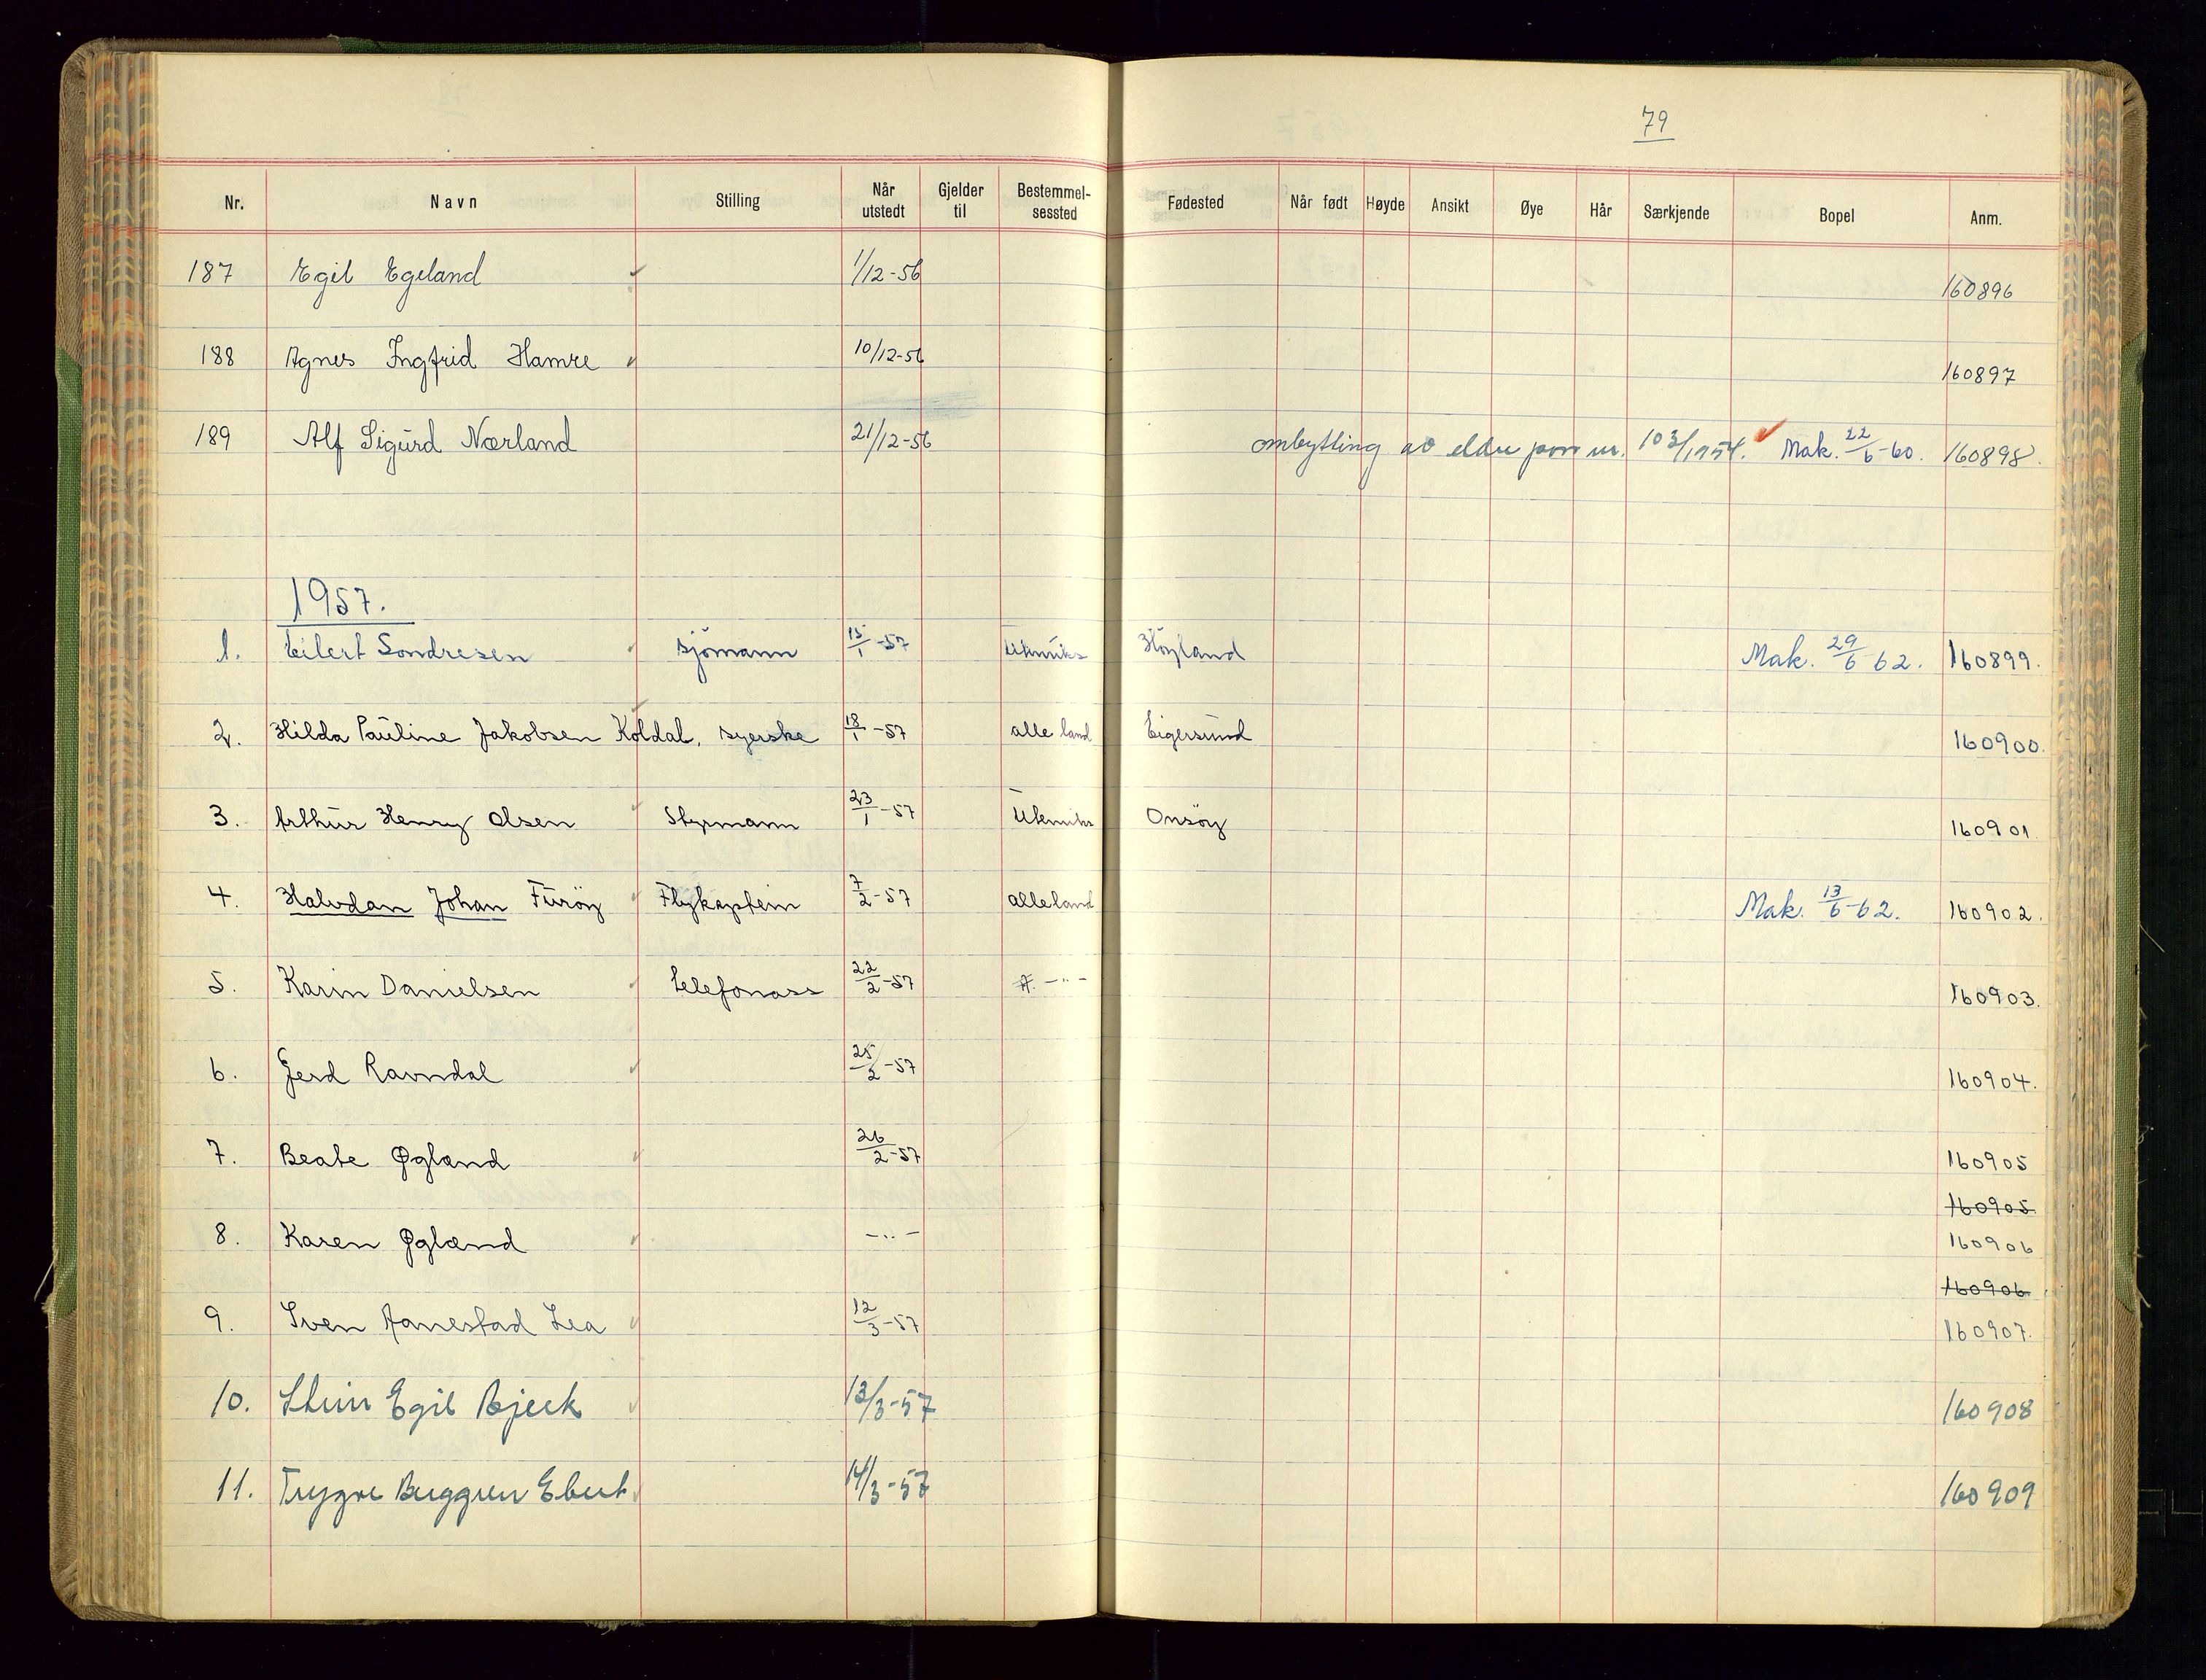 79
Nr. Navn Stilling Når utstedt Gjelder til Bestemmelsessted Fødested Når født Høyde Ansikt Øye Hår Særkjende Bopel Anm.
187 Egil Egeland 1/12-56 160896
188 Agnes Ingfrid Hamre 10/12-56 160897
189 Alf Sigurd Nærland 21/12-56 ombytting av eldre pass nr. 103/1954. Mak. 22/6-60. 160898.
1957.
1. Eilert Sondresen sjömann 15/1-57 Utenriks Höyland Mak. 29/6-62. 160899.
2. Hilda Pauline Jakobsen Koldal, syerske 18/1-57 alle land Eigersund 160900.
3. Arthur Henry Olsen Styrmann 23/1-57 Utenriks Onsöy 160901
4. Halvdan Johan Furöy Flykaptein 7/2-57 alle land Mak. 13/6-62. 160902.
5. Karin Danielsen telefonass 22/2-57 -"- 160903.
6. Gerd Ravndal 25/2-57 160904.
7. Beate Øgland 26/2-57 160905
160905
8. Karen Øgland -"- 160906
160906
9. Sven Aanestad Lea 12/3-57 160907.
10. Stein Egil Bjerk 13/3-57 160908
11. Trygve Berggren Ebert 14/3-57 160909